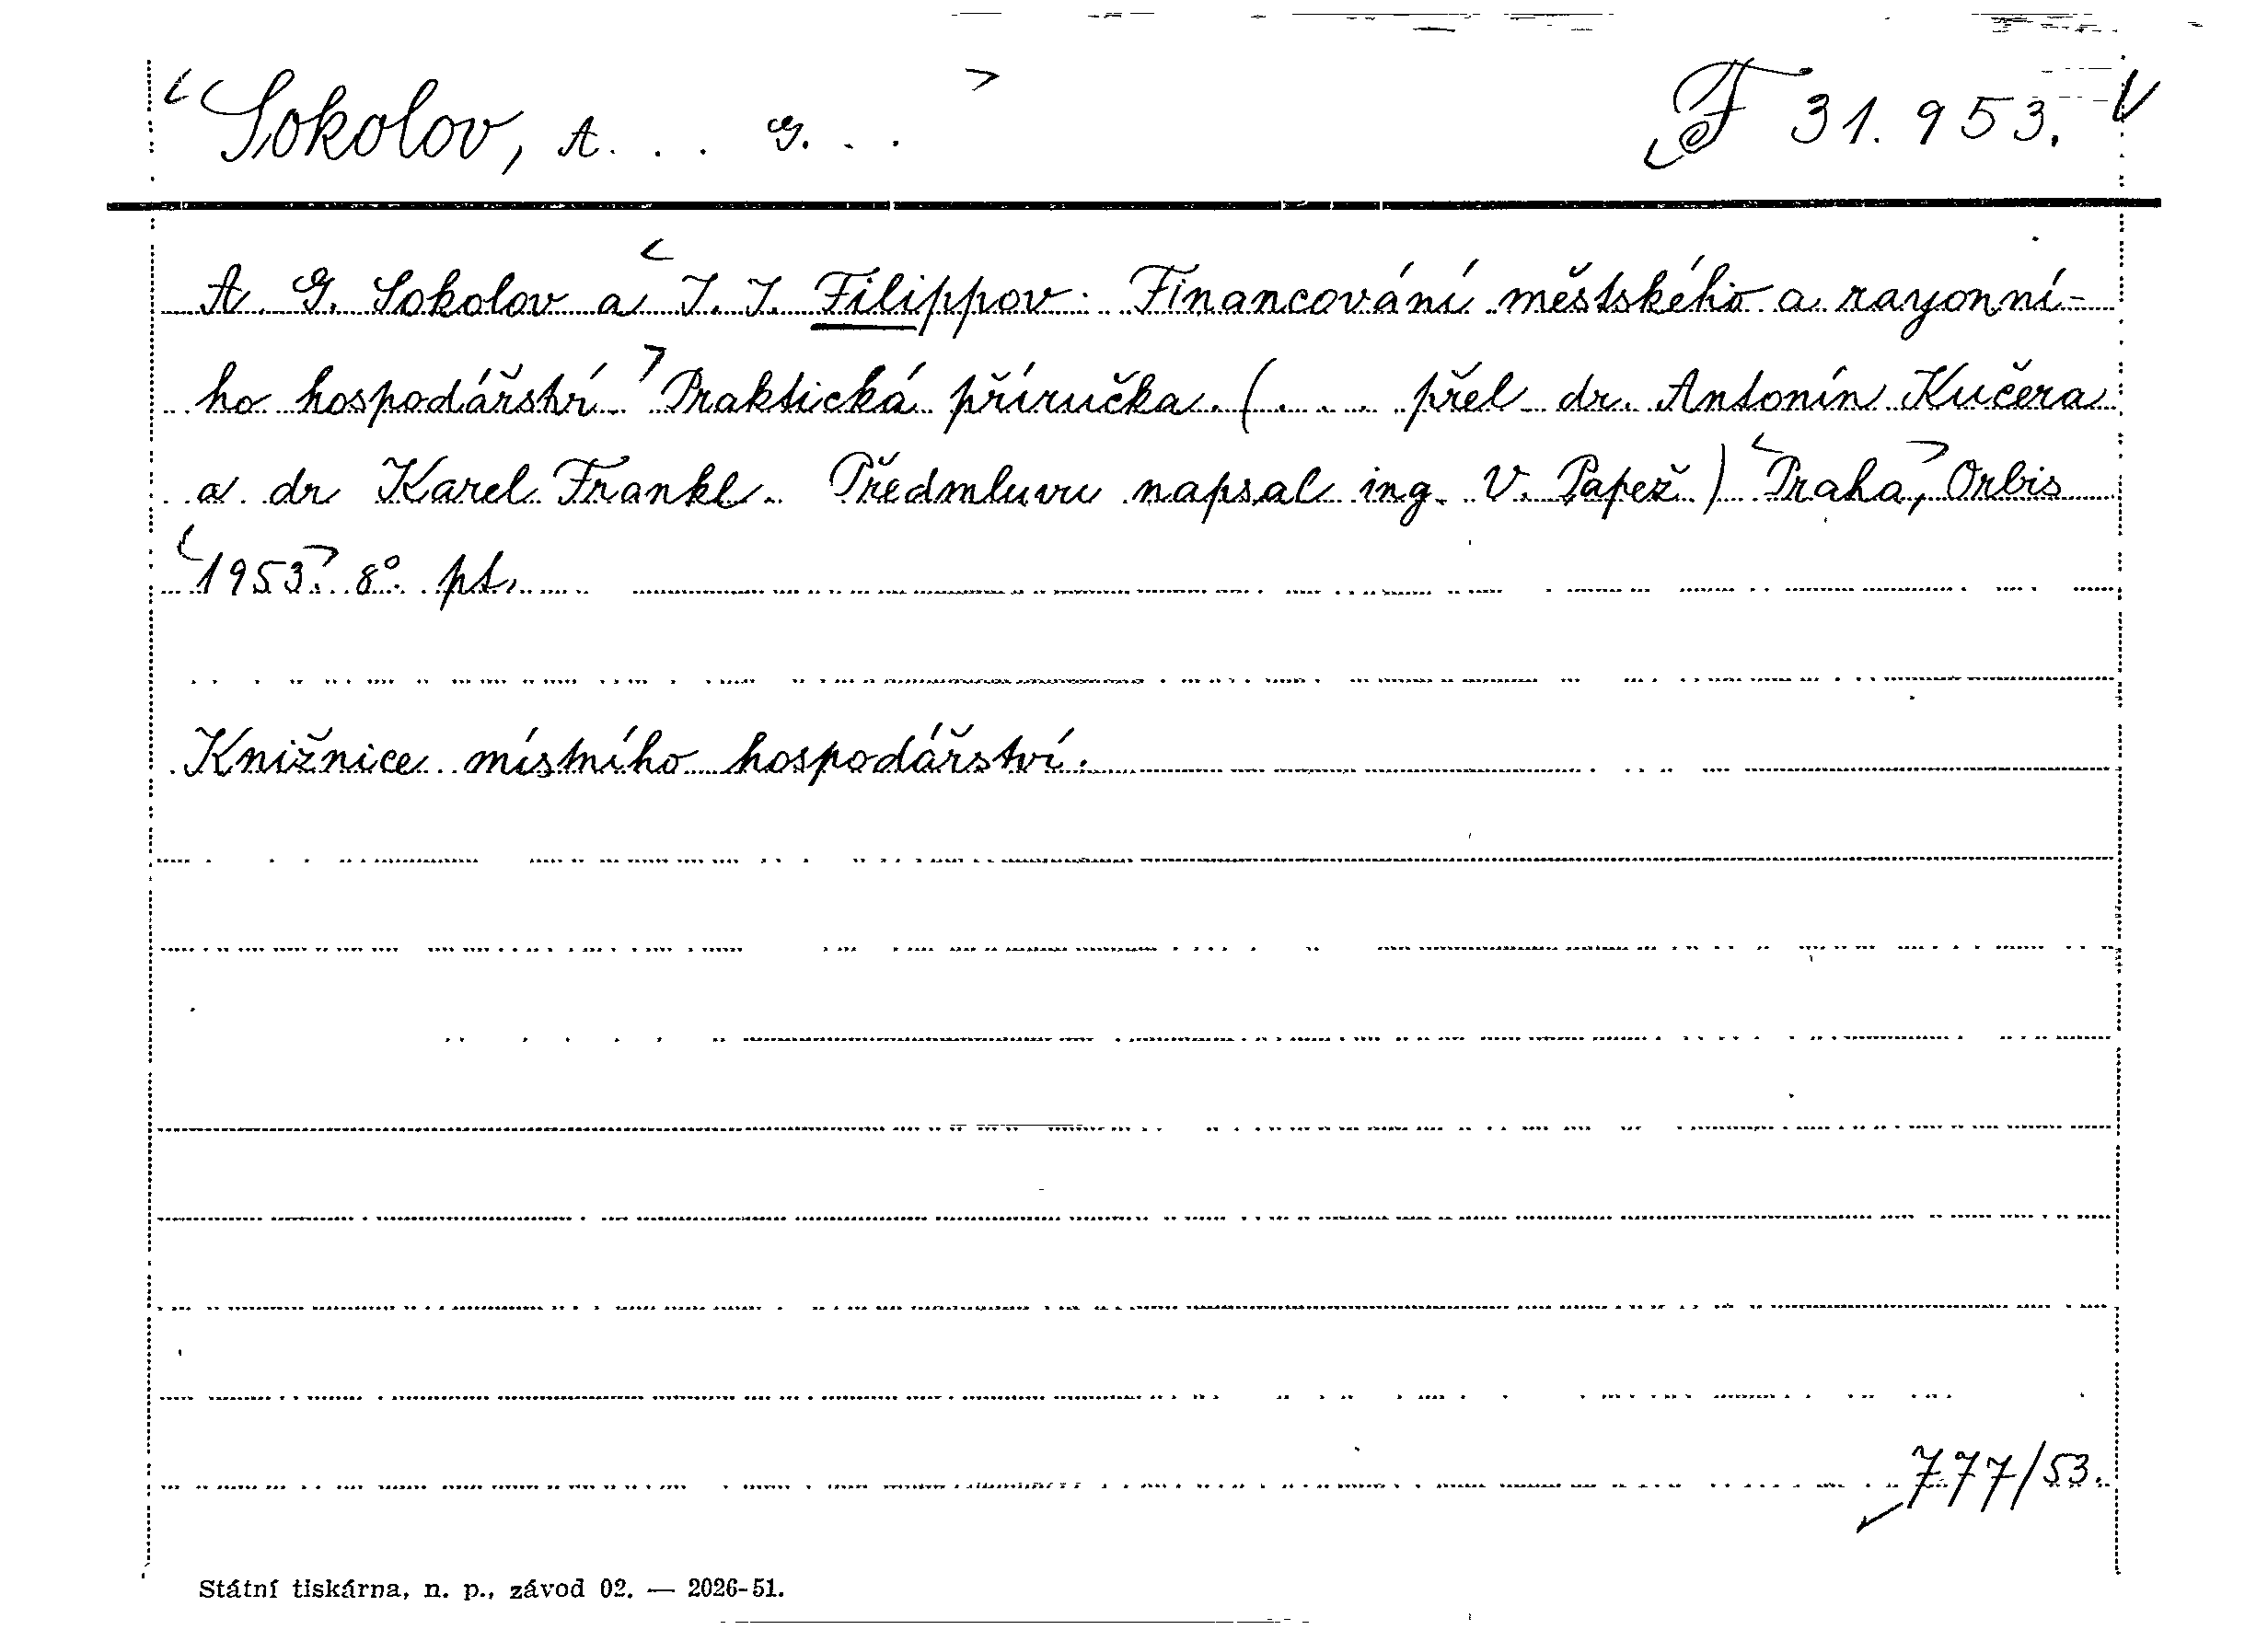 Sokolov, A. . . G. . .
F 31.953.
A. G. Sokolov a J. J. Filippov: Financování městského a rayonní-
ho hospodářství. Praktická příručka. (. . . přel. dr. Antonín Kučera
a dr Karel Frankl. Předmluvu napsal ing. V. Papež) Praha, Orbis
1953. 8°. pt.
Knižnice místního hospodářství.
777/53.
Státní tiskárna, n. p., závod 02. — 2026-51.